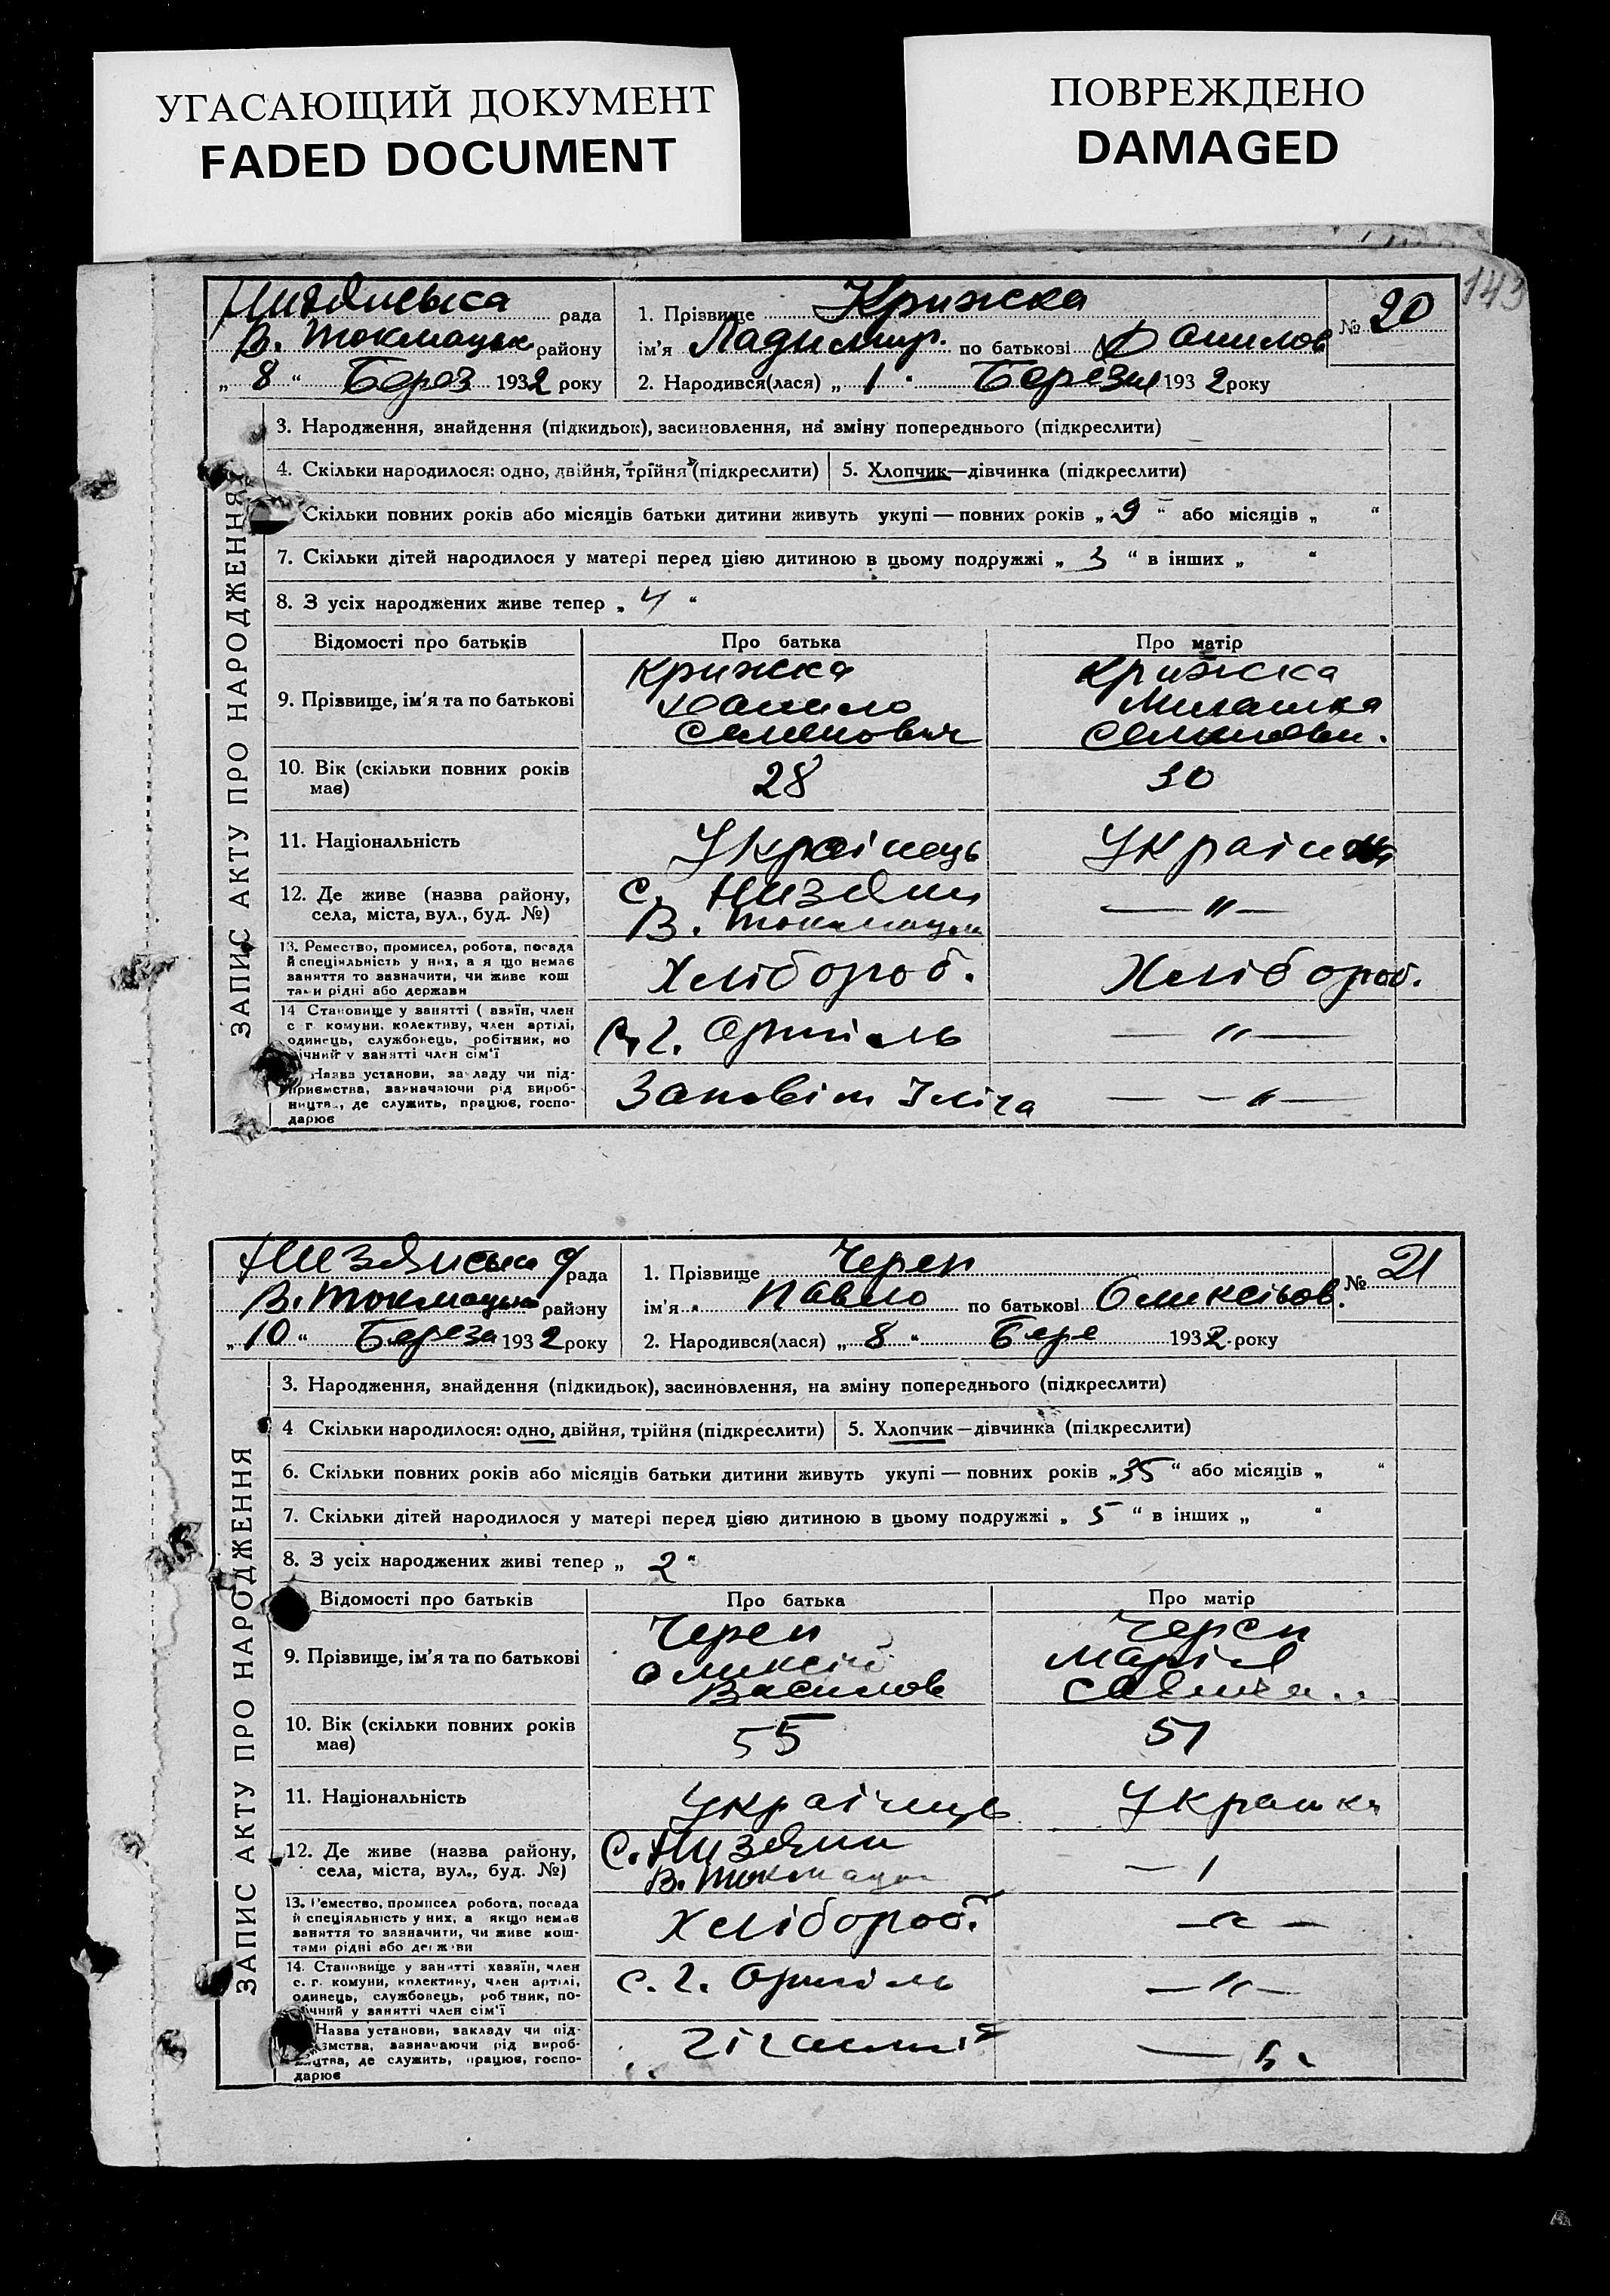 УГАСАЮЩИЙ ДОКУМЕНТ
FADED DOCUMENT
ПОВРЕЖДЕНО
DAMAGED
143
рада
В. Токмацьк району
„ 8 “ Берез 1932 року
1. Прізвище Крижска
ім'я Ладимир. по батькові Данилов
2. Народився(лася) „ 1 “ Березня 1932 року
№ 20
ЗАПИС АКТУ ПРО НАРОДЖЕННЯ
3. Народження, знайдення (підкидьок), засиновлення, на зміну попереднього (підкреслити)
4. Скільки народилося: одно, двійня, трійня (підкреслити) 5. Хлопчик—дівчинка (підкреслити)
Скільки повних років або місяців батьки дитини живуть укупі — повних років „ 9 “ або місяців „ “
7. Скільки дітей народилося у матері перед цією дитиною в цьому подружжі „ 3 “ в інших „ “
8. З усіх народжених живе тепер „ 4 “
Відомості про батьків Про батька Про матір
9. Прізвище, ім'я та по батькові
Крижска
Данило
Семенович
Крижска
10. Вік (скільки повних років
має)
28
30
11. Національність
Українець
12. Де живе (назва району,
села, міста, вул., буд. №)
с. Низяни
В. Токмацьк
— „ —
13. Ремество, промисел, робота, посада
й спеціяльність у них, а я що немає
заняття то зазначити, чи живе кош
тами рідні або держави
Хлібороб.
Хлібороб.
14 Становище у занятті ( авяїн, член
с г комуни, колективу, член артілі,
одинець, службовець, робітник, по
ічний у занятті член сім'ї
с. г. Артіль
— „ —
Назва установи, за ладу чи під-
приємства, зазначаючи рід вироб-
ництва, де служить, працює, госпо-
дарює
Заповіт Ілліча
— - „ —
Низянська рада
В. Токмацьк району
„ 10 “ Береза 1932 року
1. Прізвище Череп
ім'я Павло по батькові Оликсійов.
2. Народився(лася) „ 8 “ Бере 1932 року
№ 21
ЗАПИС АКТУ ПРО НАРОДЖЕННЯ
3. Народження, знайдення (підкидьок), засиновлення, на зміну попереднього (підкреслити)
4 Скільки народилося: одно, двійня, трійня (підкреслити) 5. Хлопчик—дівчинка (підкреслити)
6. Скільки повних років або місяців батьки дитини живуть укупі — повних років „ 35 “ або місяців „ “
7. Скільки дітей народилося у матері перед цією дитиною в цьому подружжі „ 5 “ в інших „ “
8. З усіх народжених живі тепер „ 2 “
Відомості про батьків Про батька Про матір
9. Прізвище, ім'я та по батькові
Череп
Оликсій
Василов
Череп
Марія
10. Вік (скільки повних років
має)
55
51
11. Національність
Українець
Украинка
12. Де живе (назва району,
села, міста, вул., буд. №)
с. Низяни
В. Токмацьк
13. Ремество, промисел робота, посада
й спеціяльність у них, а якщо немає
заняття то зазначити, чи живе кош-
тами рідні або держави
Хлібороб.
— „ —
14. Становище у занятті хазяїн, член
с. г. комуни, колективу, член артілі,
одинець, службовець, роб тник, по-
ічний у занятті член сім'ї
с. г. Артіль
— „ —
Назва установи, закладу чи під-
ємства, зазначаючи рід вироб-
ництва, де служить, працює, госпо-
дарює